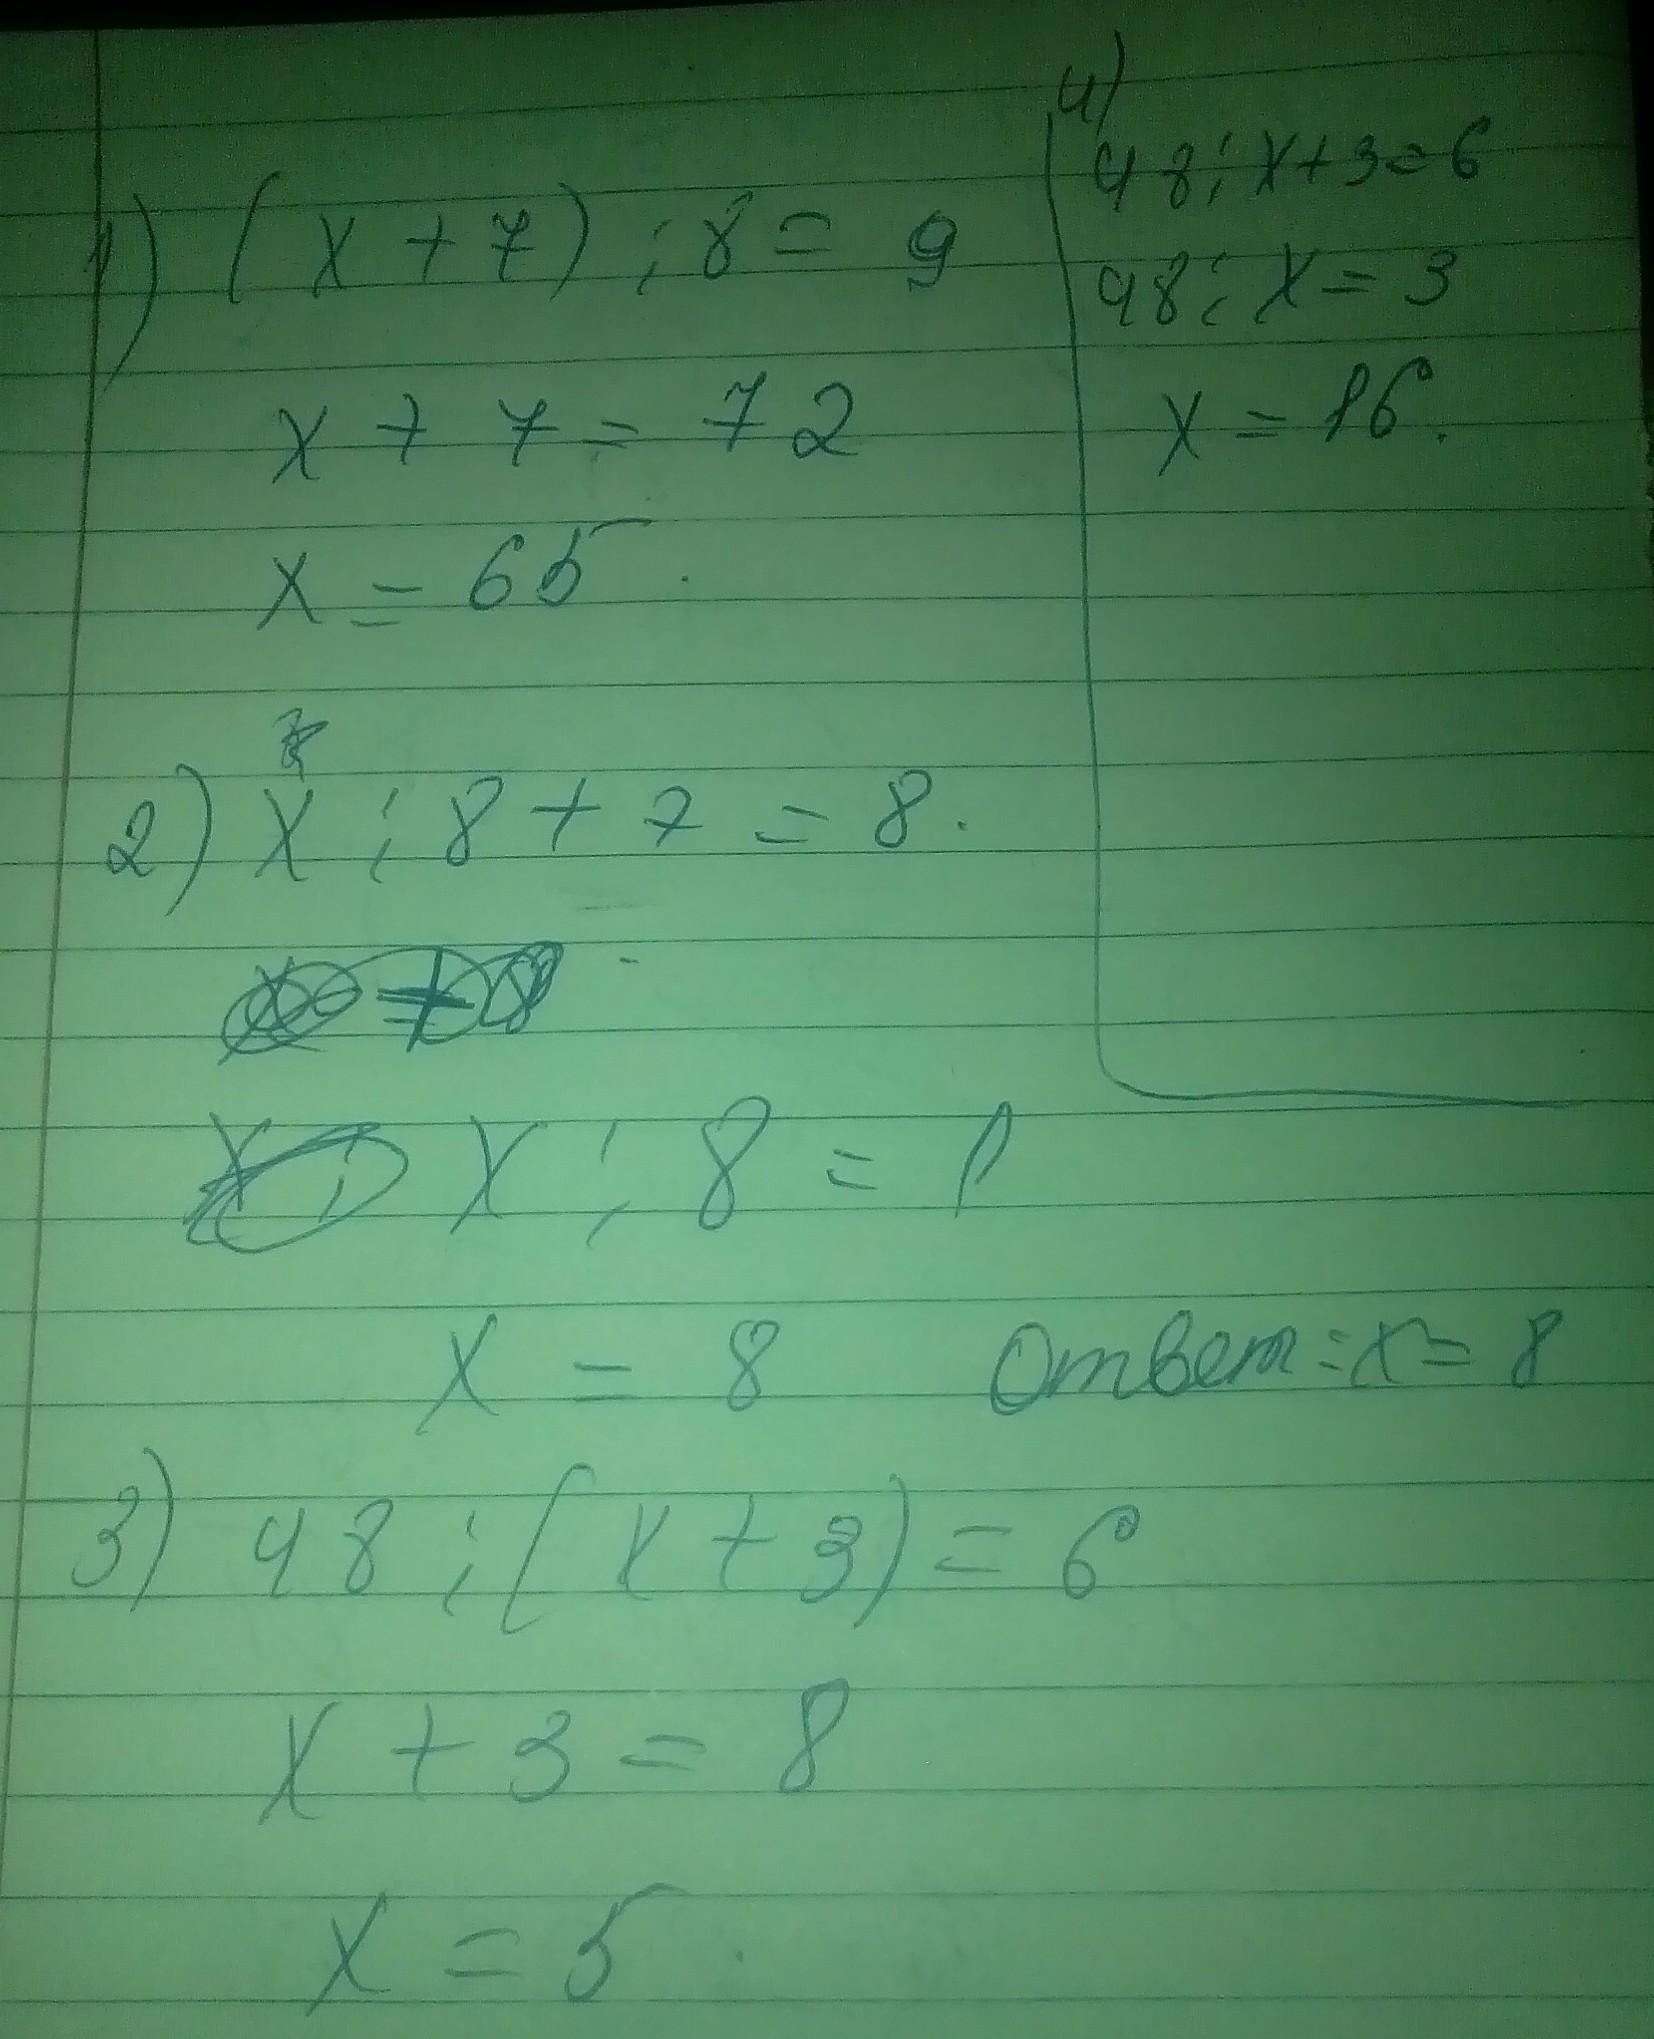 1) (x + 7) : 8 = 9
x + 7 = 72
x = 65.
2) x : 8 + 7 = 8.
x : 8 = 1
x = 8 Ответ: x = 8
3) 48 : (x + 3) = 6
x + 3 = 8
x = 5.
4)
48 : x + 3 = 6
48 : x = 3
x = 16.